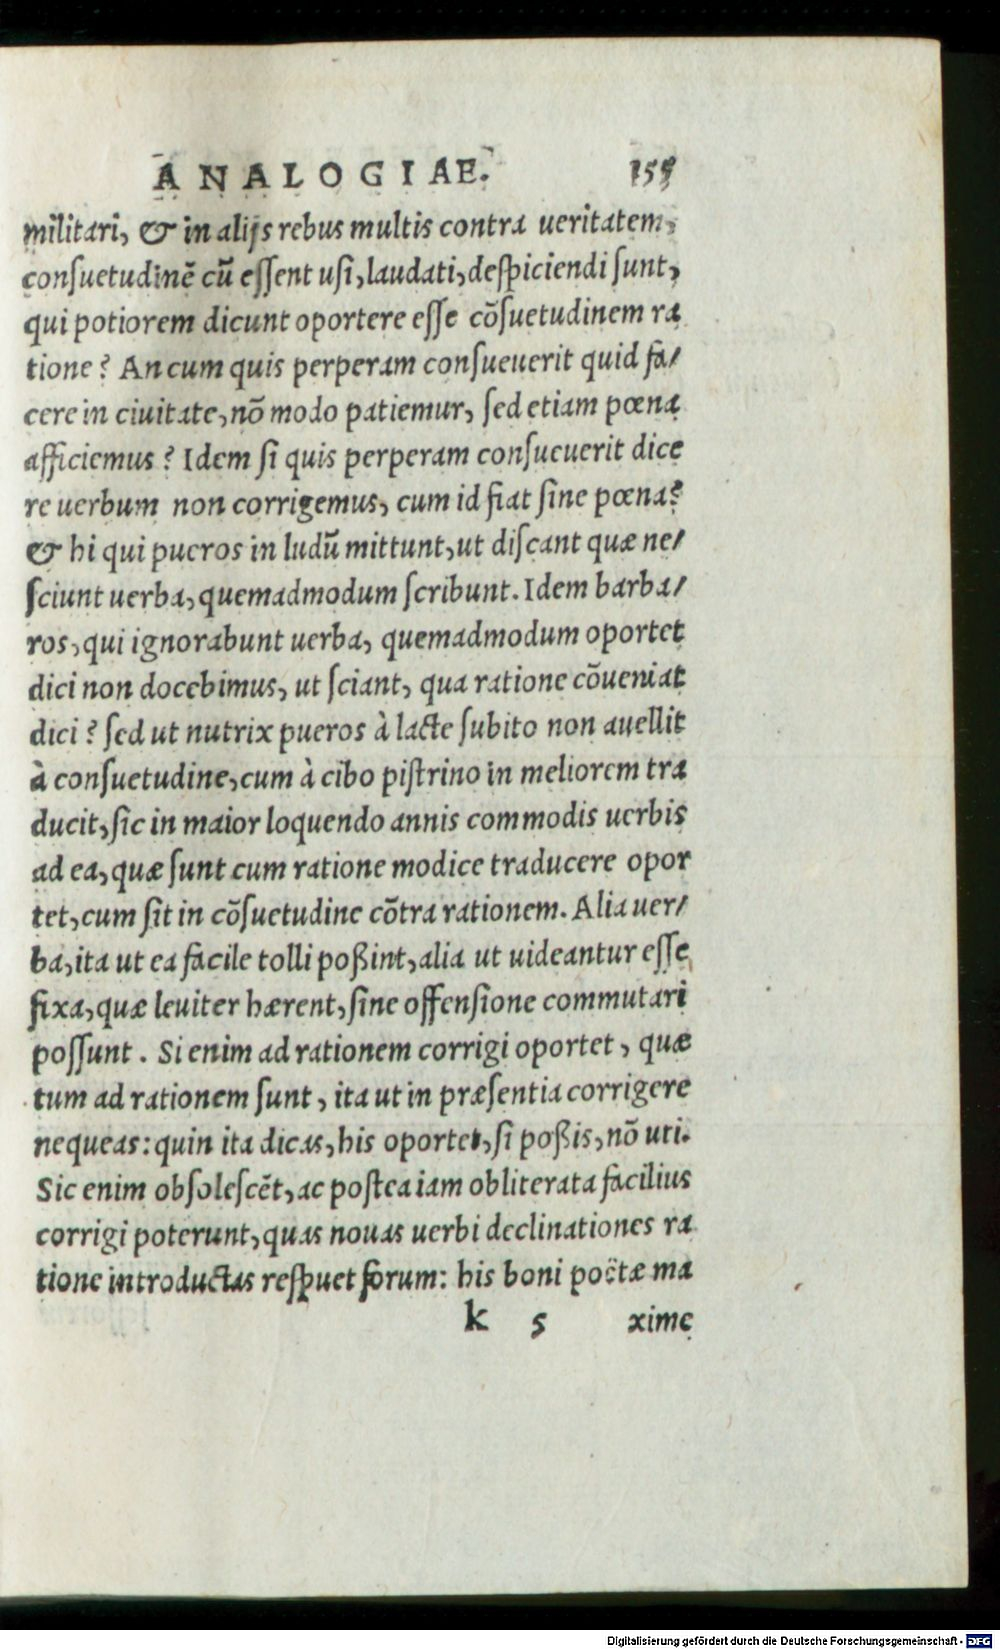 ANALOGIAE. 155
militari, & in alijs rebus multis contra ueritatem,
conſuetudinē cū eſſent uſi, laudati, deſpiciendi ſunt,
qui potiorem dicunt oportere eſſe cōſuetudinem ra
tione? An cum quis perperam conſueuerit quid fa/
cere in ciuitate, nō modo patiemur, ſed etiam pœna
afficiemus? Idem ſi quis perperam conſueuerit dice
re uerbum non corrigemus, cum id fiat ſine pœna?
& hi qui pueros in ludū mittunt, ut diſcant quæ ne/
ſciunt uerba, quemadmodum ſcribunt. Idem barba/
ros, qui ignorabunt uerba, quemadmodum oportet
dici non docebimus, ut ſciant, qua ratione cōueniat
dici? ſed ut nutrix pueros à lacte ſubito non auellit
à conſuetudine, cum à cibo piſtrino in meliorem tra
ducit, ſic in maior loquendo annis commodis uerbis
ad ea, quæ ſunt cum ratione modice traducere opor
tet, cum ſit in cōſuetudine cōtra rationem. Alia uer/
ba, ita ut ea facile tolli poßint, alia ut uideantur eſſe
fixa, quæ leuiter hærent, ſine offenſione commutari
poſſunt. Si enim ad rationem corrigi oportet, quæ
tum ad rationem ſunt, ita ut in præſentia corrigere
nequeas: quin ita dicas, his oportet, ſi poßis, nō uti.
Sic enim obſoleſcēt, ac poſtea iam obliterata facilius
corrigi poterunt, quas nouas uerbi declinationes ra
tione introductas reſpuet forum: his boni poëtæ ma
k 5 xime
Digitalisierung gefördert durch die Deutsche Forschungsgemeinschaft - DFG